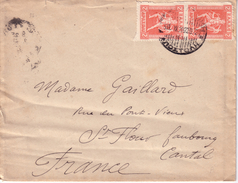 Madame Gaillard
Rue du Pont-Vieux
St Flour faubourg
Cantal
France